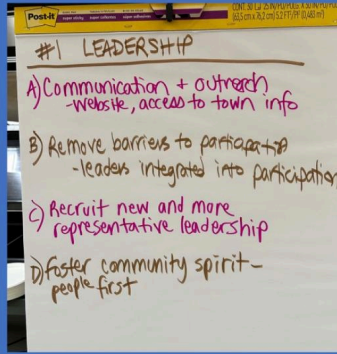 Post-it
super sticky
#1 LEADERSHIP
A) Communication + outreach
-website, access to town info
B) Remove barriers to participation
-leaders integrated into participation
C) Recruit new and more
representative leadership
D) foster community spirit-
people first